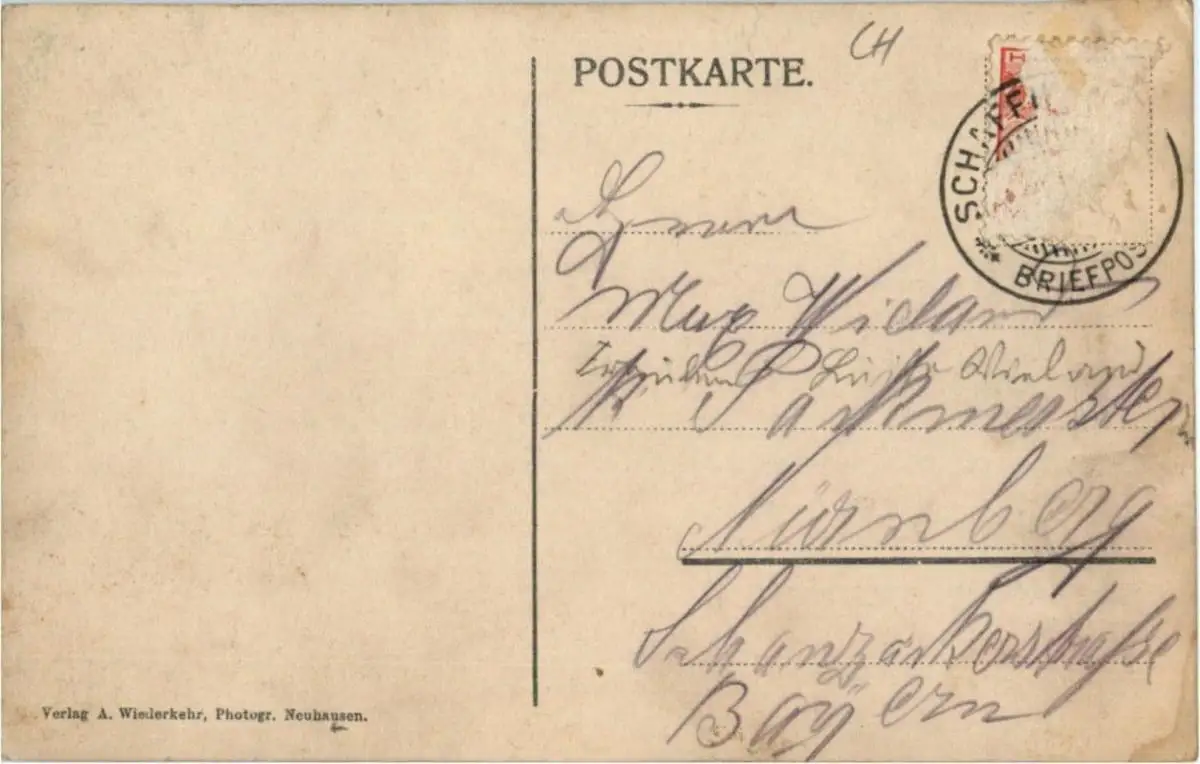 POSTKARTE.
CH
SCHAFF
BRIEFPOS
Herrn
Max Wieland
Luise Wieland
K. Parkmeister
Nürnberg
Schanzäckerstraße
Bayern
Verlag A. Wiederkehr, Photogr. Neuhausen.